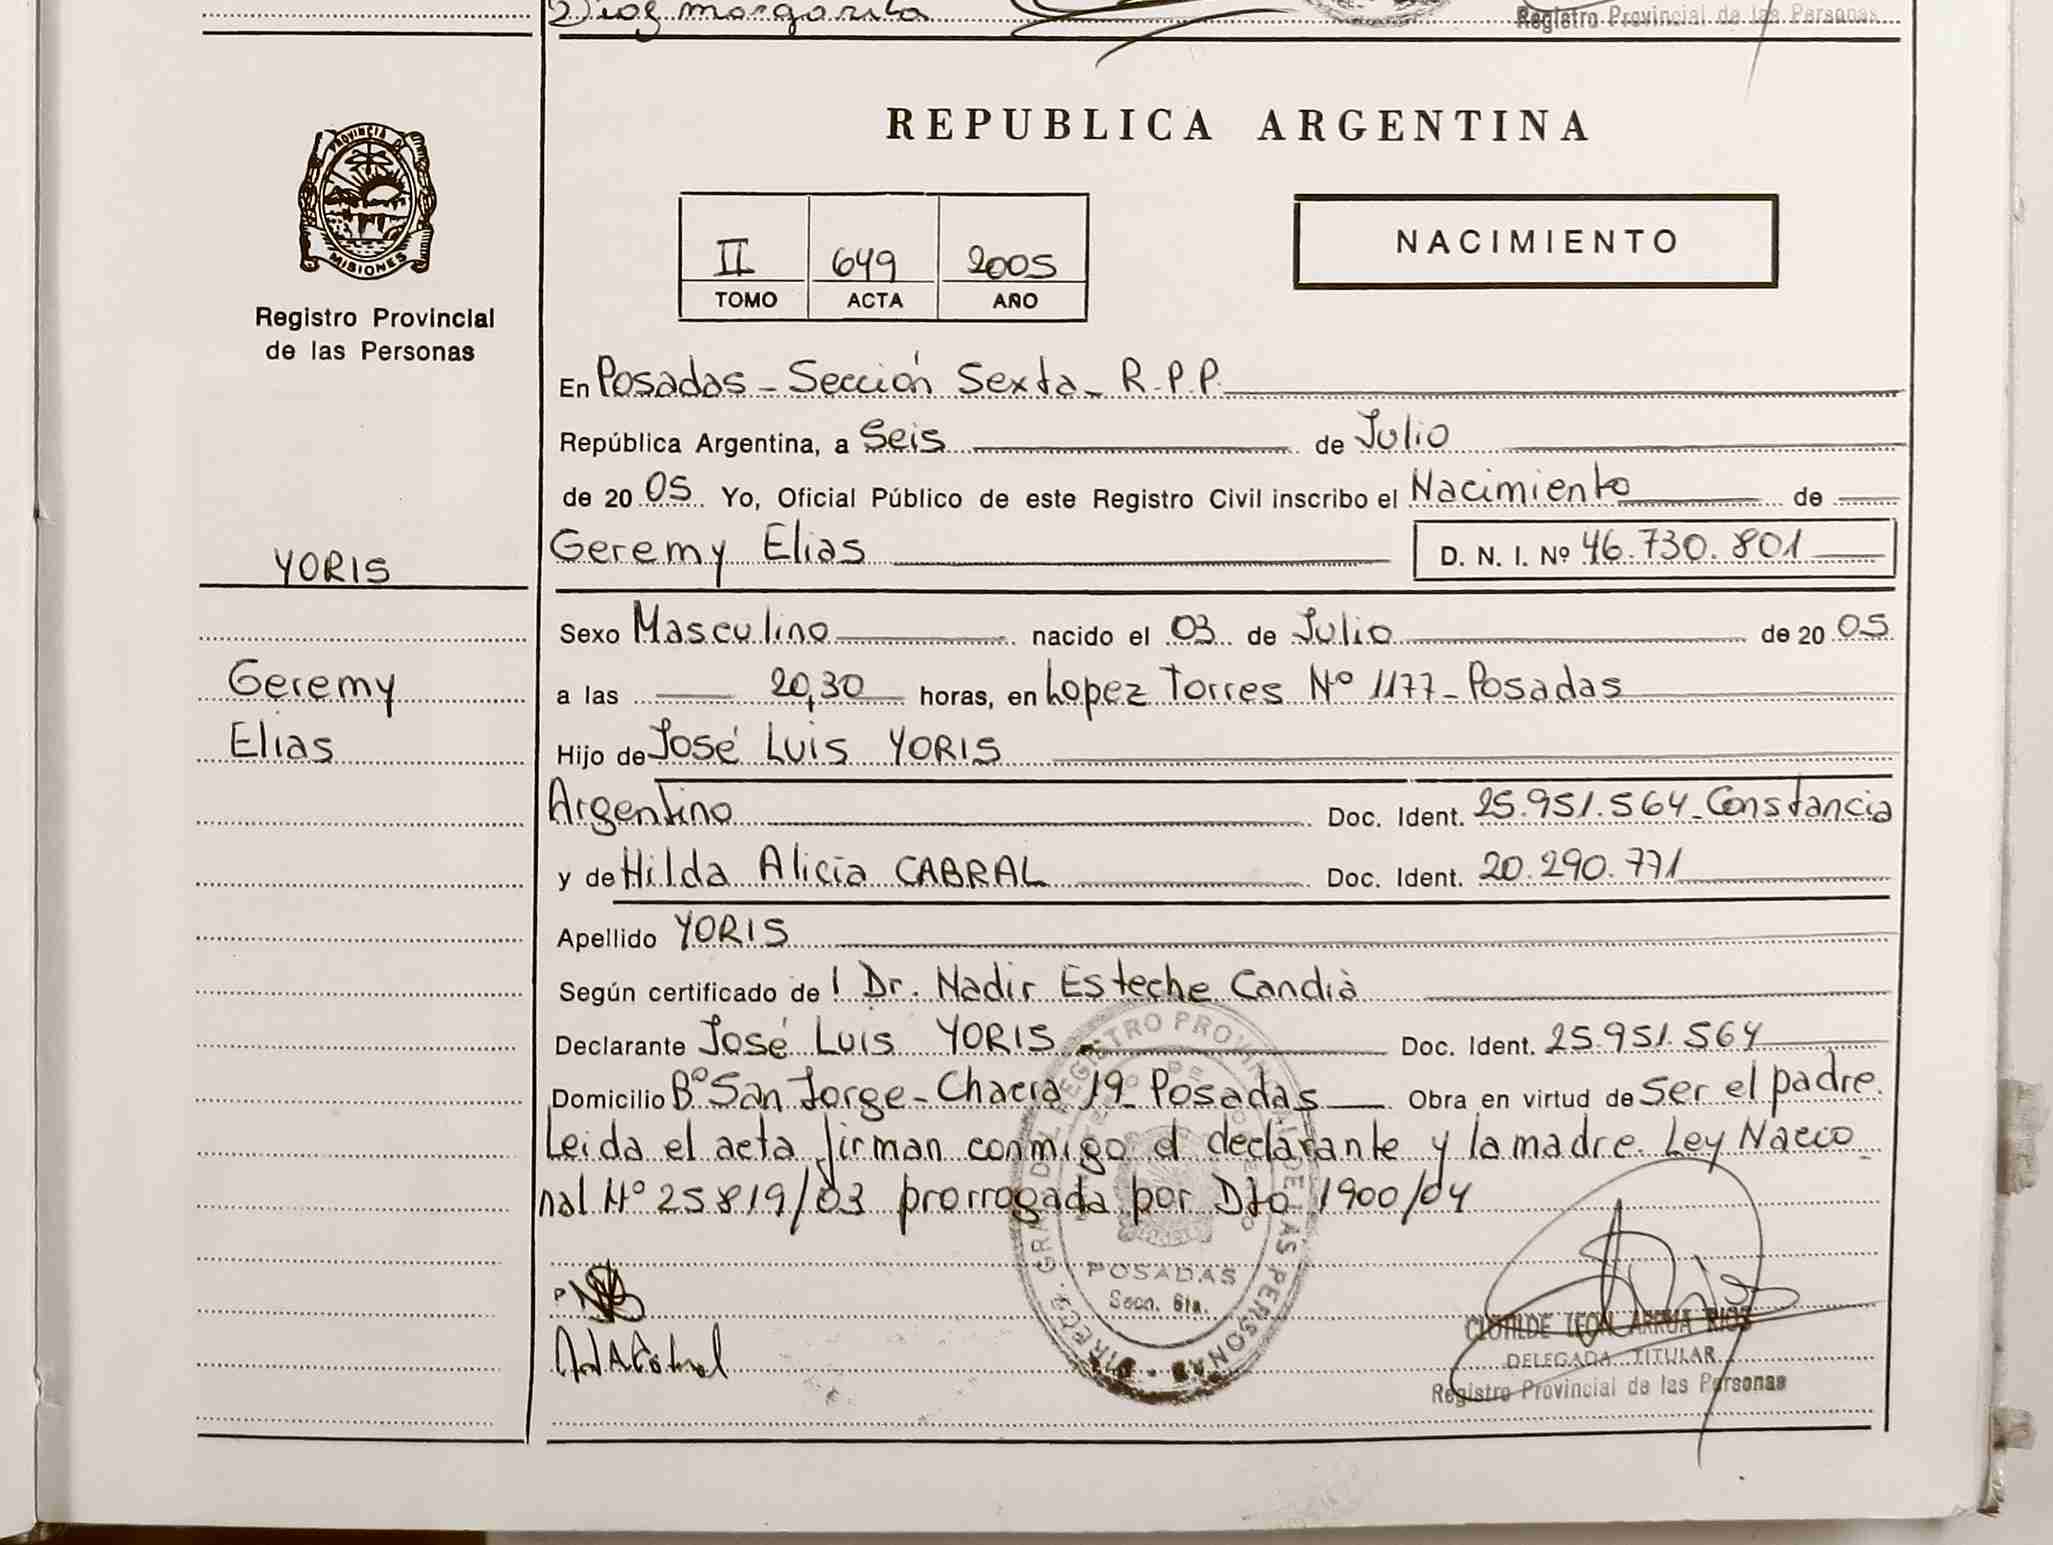 Diaz Margarita
Registro Provincial de las Personas
PROVINCIA DE
MISIONES
Registro Provincial
de las Personas
REPUBLICA ARGENTINA
II 649 2005
TOMO ACTA AÑO
NACIMIENTO
En Posadas - Sección Sexta - R.P.P.
República Argentina, a Seis de Julio
de 20 05 Yo, Oficial Público de este Registro Civil inscribo el Nacimiento de
YORIS
Geremy Elias D. N. I. Nº 46.730.801
Sexo Masculino nacido el 03 de Julio de 20 05
Geremy
a las 20,30 horas, en Lopez Torres Nº 1177 - Posadas
Elias
Hijo de José Luis YORIS
Argentino Doc. Ident. 25.951.564 - Constancia
y de Hilda Alicia CABRAL Doc. Ident. 20.290.771
Apellido YORIS
Según certificado de l Dr. Nadir Esteche Candia
Declarante José Luis YORIS Doc. Ident. 25.951.564
Domicilio Bº San Jorge - Chacra 19 - Posadas Obra en virtud de Ser el padre.
Leida el acta firman conmigo el declarante y la madre. Ley Nacio-
nal Nº 25819/03 prorrogada por Dto 1900/04
DIRECC. GRAL DEL REGISTRO PROVINCIAL DE LAS PERSONAS
POSADAS
Secn. 6ta.
CLOTILDE LEON ARRUA RIOS
DELEGADA TITULAR
Registro Provincial de las Personas